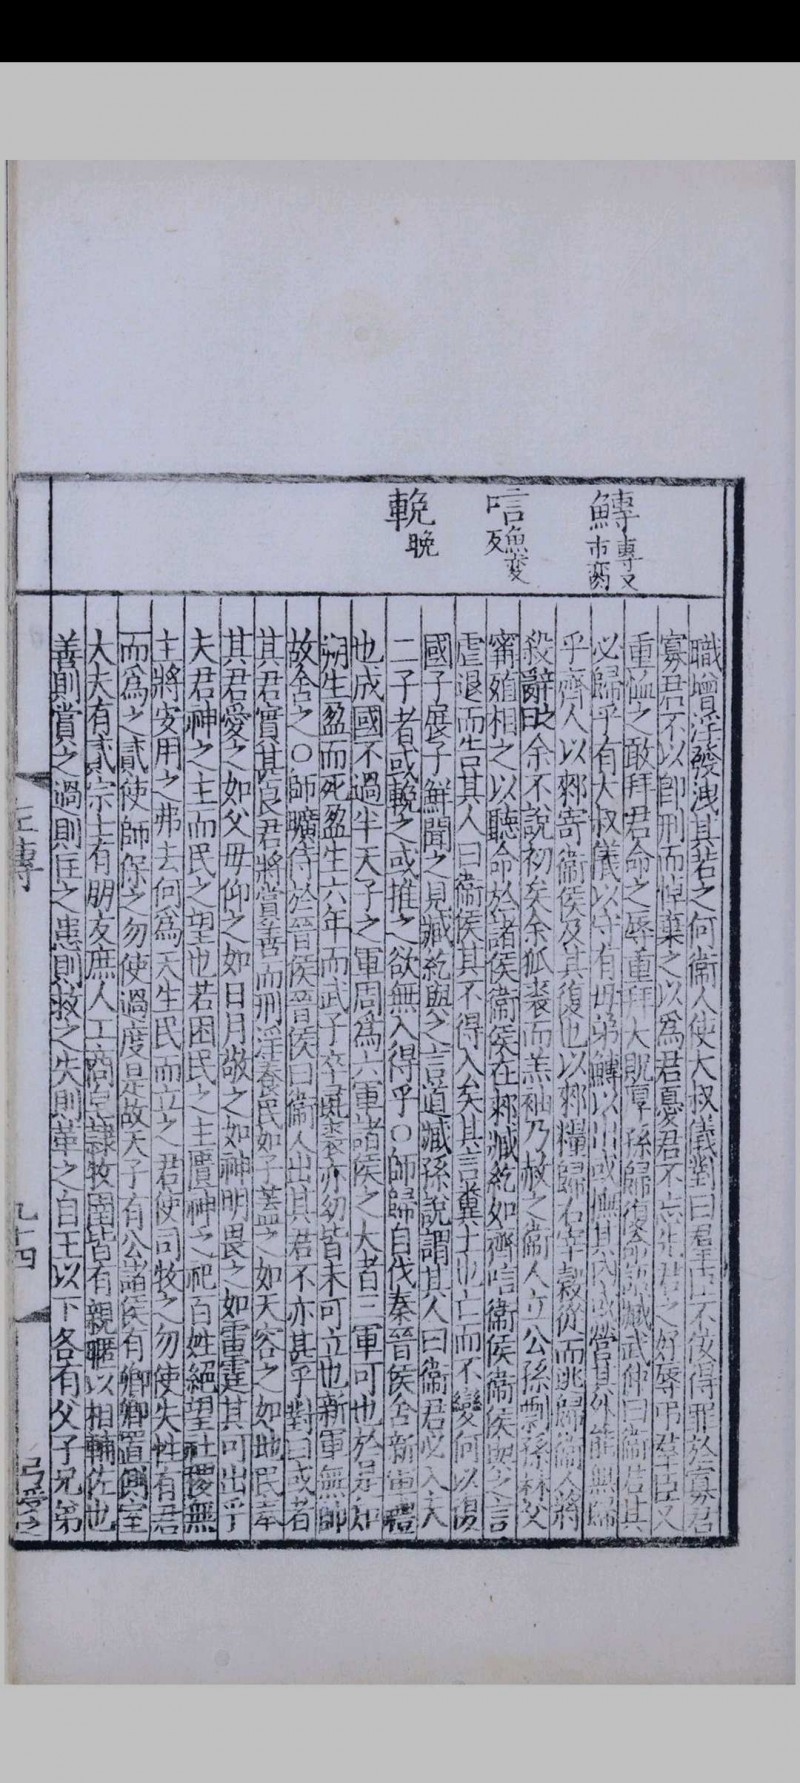 鱄專又市臠
唁魚変反
輓晚
職增淫發洩其若之何衞人使大叔儀對曰羣臣不佞得罪於寡君
寡君不以即刑而悼棄之以爲君憂君不忘先君之好辱弔羣臣又
重恤之敢拜君命之辱重拜大貺厚孫歸復命語臧武仲曰衞君其
必歸乎有大叔儀以守有母弟鱄以出或撫其內或營其外能無歸
乎齊人以郲寄衞侯及其復也以郲糧歸右宰穀從而逃歸衞人將
殺辭曰余不說初矣余狐裘而羔袖乃赦之衞人立公孫剽孫林父
甯殖相之以聽命於諸侯衞侯在郲臧紇如齊唁衞侯衞侯與之言
虐退而告其人曰衞侯其不得入矣其言糞土也亡而不變何以復
國子展子鮮聞之見臧紇與之言道臧孫說謂其人曰衞君必入夫
二子者或輓之或推之欲無入得乎○師歸自伐秦晉侯舍新軍禮
也成國不過半天子之軍周爲六軍諸侯之大者三軍可也於是知
朔生盈而死盈生六年而武子卒彘裘亦幼皆未可立也新軍無帥
故舍之○師曠侍於晉侯晉侯曰衞人出其君不亦甚乎對曰或者
其君實甚良君將賞善而刑淫養民如子蓋之如天容之如地民奉
其君愛之如父母仰之如日月敬之如神明畏之如雷霆其可出乎
夫君神之主而民之望也若困民之主匱神之祀百姓絕望社稷無
主將安用之弗去何爲天生民而立之君使司牧之勿使失性有君
而爲之貳使師保之勿使過度是故天子有公諸侯有卿卿置側室
大夫有貳宗士有朋友庶人工商皂隸牧圉皆有親暱以相輔佐也
善則賞之過則匡之患則救之失則革之自王以下各有父子兄弟
左傳
九十四